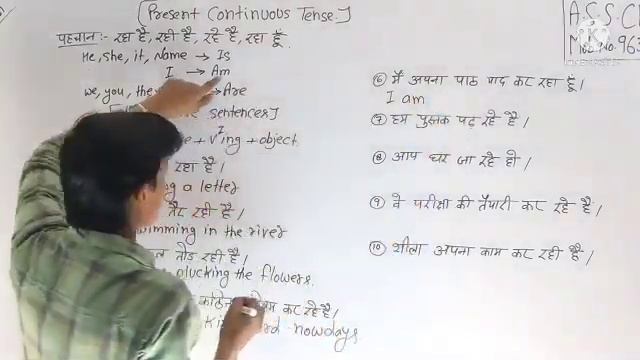 [Present Continuous Tense.]
पहचान:- रहा है, रही है, रहे है, रहा हूँ.
He, she, it, Name → Is
I → Am
we, you, the → Are
sentences]
+ ving + object
रहा है।
a letter
तैर रही है।
swimming in the river
तोड़ रही है।
plucking the flowers.
कर रहे है।
nowdays
A.S.S.C
Mob.No. 963
⑥ मैं अपना पाठ याद कर रहा हूँ।
I am
⑦ हम पुस्तक पढ़ रहे है।
⑧ आप घर जा रहे हो।
⑨ वे परीक्षा की तैयारी कर रहे है।
⑩ शीला अपना काम कर रही है।